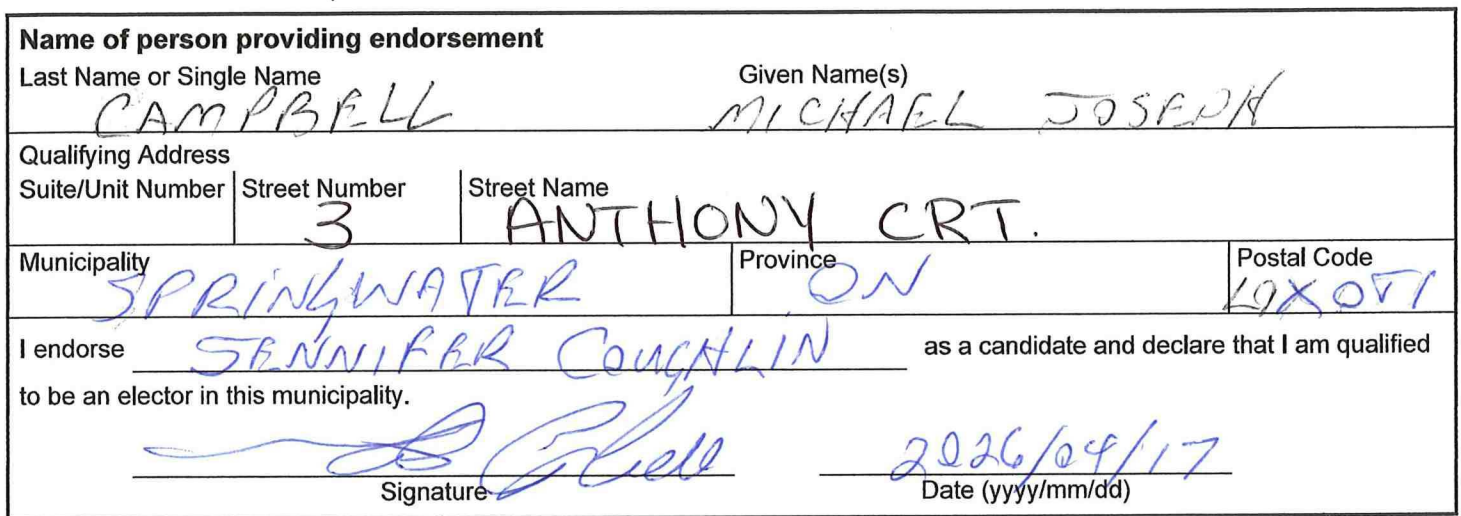 Name of person providing endorsement
Last Name or Single Name Given Name(s)
CAMPBELL MICHAEL JOSEPH
Qualifying Address
Suite/Unit Number Street Number Street Name
3 ANTHONY CRT.
Municipality Province Postal Code
SPRINGWATER ON L9X0T1
I endorse JENNIFER COUGHLIN as a candidate and declare that I am qualified
to be an elector in this municipality.
2026/04/17
Signature Date (yyyy/mm/dd)